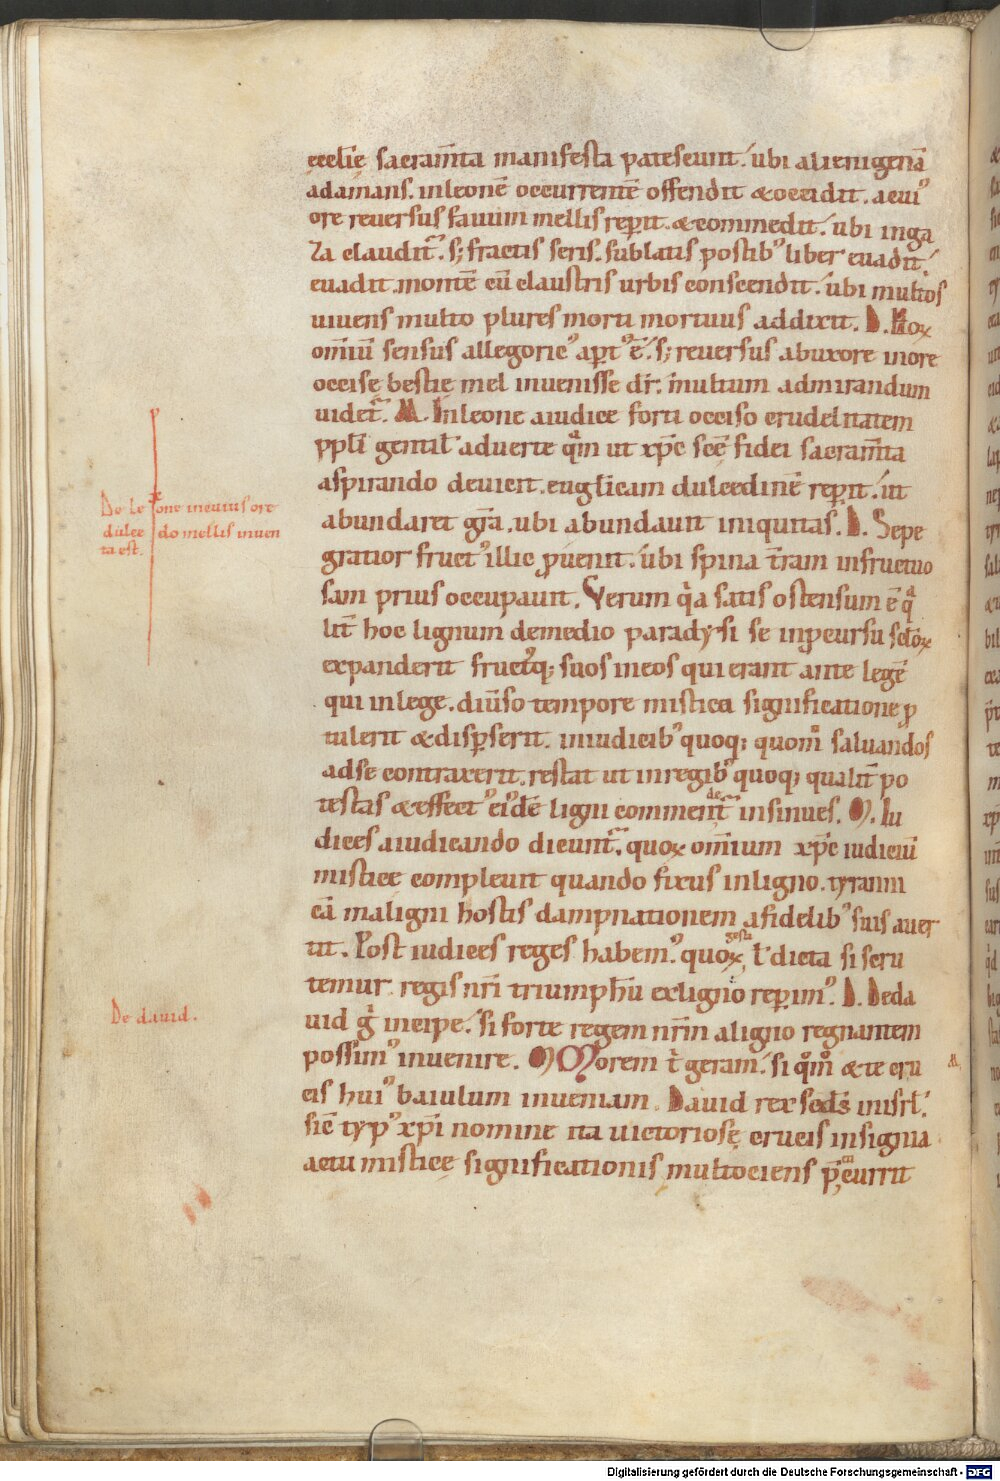 ęcclię sacram̄ta manifesta patescunt. ubi alienigenā
adamans. inleonē occurrentē offendit &occidit. acui᾽
ore reuersus fauum mellis repit. &commedit. ubi inga
za claudit᷑. s; fractis seris. sublatis postib᾽ liber euadit.
euadit. montē cū claustris urbis conscendit. ubi multos
uiuens multo plures morti mortuus addixit. D. Hoꝝ
om̄iū sensus allegoric᾽ apt᾽ ē. s; reuersus abuxore inore
occisę bestię mel inuenisse dr̄. multum admirandum
uidet᷑. M. Inleone aiudice forti occiso crudelitatem
ppl̄i gentil᾽ aduerte qͣm ut xp̄c scē fidei sacram̄ta
aspirando deuicit. euglicam dulcedinē repit. ut
abundaret gr̄a. ubi abundauit iniquitas. D. Sepe
gratior fruct᾽ illic ꝓuenit. ubi spina t̄ram infructuo
sam prius occupauit. Verum qͥa satis ostensum ē qͣ
lit̄ hoc lignum demedio paradysi se inpcursu sc̄loꝝ
expanderit fruct᾽q; suos ineos qui erant ante legē
qui inlege. diūso tempore mistica significatione ꝓ
tulerit &dispserit. iniudicib᾽ quoq; quom̊ saluandos
adse contraxerit. restat ut inregib᾽ quoq; qualit̄ po
testas &effect᾽ ei᾽dē ligni commendet᷑ insinues. M. Iu
dices aiudicando dicunt᷑. quoꝝ om̄ium xp̄c iudiciū
misticę compleuit quando fixus inligno. tyranni
cā maligni hostis dampnationem afidelib᾽ suis auer
tit. Post iudices reges habem᾽. quoꝝ gesta l̄ dicta si scru
temur. regis nr̄i triumphū exligno repim᾽. D. Deda
uid g̊ incipe. si forte regem nr̄m aligno regnantem
possim᾽ inuenire. M Morem tͥ geram. si qm̊ &te cru
cis hui᾽ baiulum inueniam. Dauid rex scd̄s inisrl̄.
sic̄ typ᾽ xp̄i nomine ita uictoriosę crucis insignia
actu misticę significationis multociens p̄currit
De leone incuius ore
dulcedo mellis inuen
ta est.
De dauid.
Digitalisierung gefördert durch die Deutsche Forschungsgemeinschaft - DFG